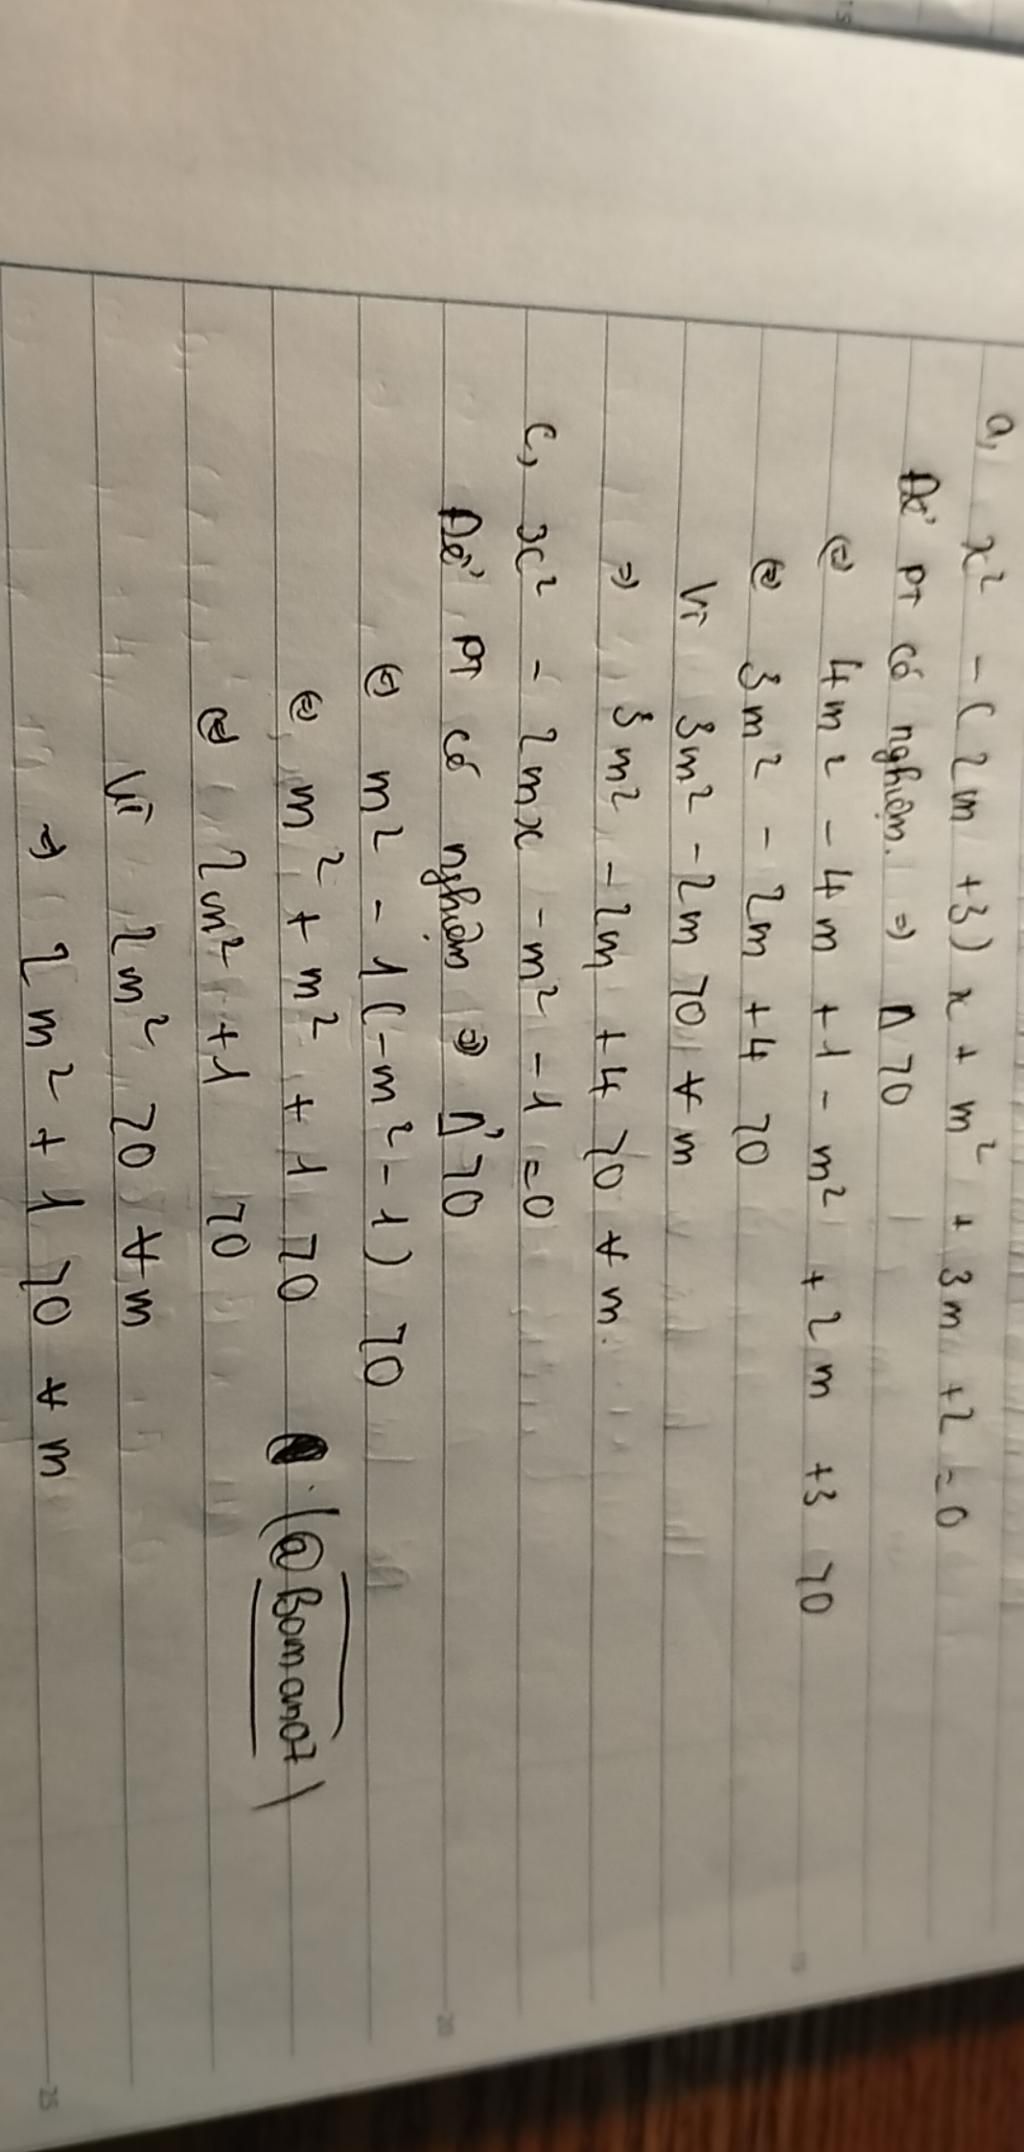 a, x² - (2m +3) x + m² + 3m +2 =0
Để pt có nghiệm. => Δ >0
<=> 4m² - 4m +1 - m² + 2m +3 >0
<=> 3m² - 2m +4 >0
Vì 3m² - 2m >0 ∀ m
=> 3m² - 2m +4 >0 ∀ m.
c, x² - 2mx - m² - 1 =0
Để pt có nghiệm => Δ' >0
<=> m² - 1(-m² - 1) >0
<=> m² + m² + 1 >0 (@Bomano7)
<=> 2m² +1 >0
Vì 2m² >0 ∀ m
=> 2m² + 1 >0 ∀ m
15
19
20
25